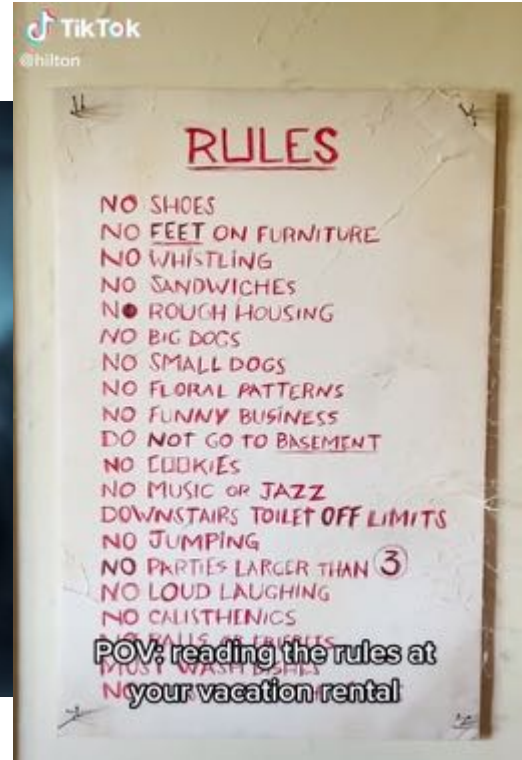 TikTok
@hilton
RULES
NO SHOES
NO FEET ON FURNITURE
NO WHISTLING
NO SANDWICHES
NO ROUGH HOUSING
NO BIG DOGS
NO SMALL DOGS
NO FLORAL PATTERNS
NO FUNNY BUSINESS
DO NOT GO TO BASEMENT
NO COOKIES
NO MUSIC OR JAZZ
DOWNSTAIRS TOILET OFF LIMITS
NO JUMPING
NO PARTIES LARGER THAN 3
NO LOUD LAUGHING
NO CALISTHENICS
NO BALLS OR FRISBEES
POV: reading the rules at
MUST WASH DISHES
your vacation rental
NO